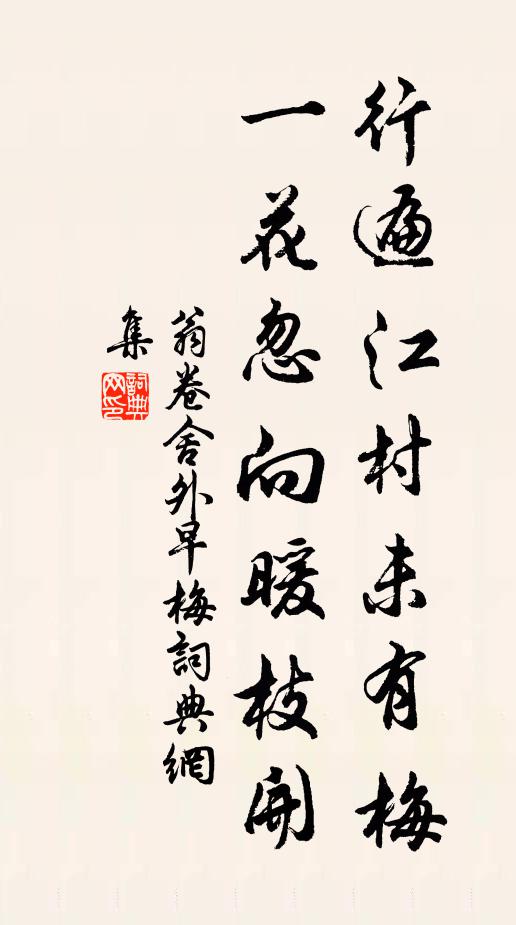 行遍江村未有梅
一花忽向暖枝開
翁卷舍外早梅詞典網
集
詞典网印